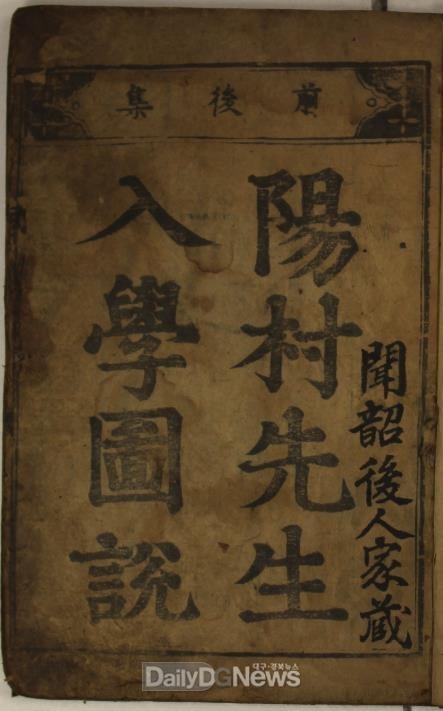 前後集
聞韶後人家蔵
陽村先生
入學圖說
대구·경북뉴스
DailyDGNews